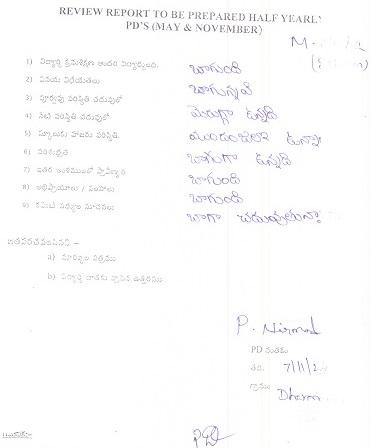 REVIEW REPORT TO BE PREPARED HALF YEARLY
PD'S (MAY & NOVEMBER)
1) విద్యార్థి క్రమశిక్షణ అందరి విద్యార్థులతో. బాగుంది
2) వినయ విధేయతలు బాగున్నవి
3) పూర్వపు పరిస్థితి చదువులో మెరుగ్గా ఉన్నది
4) నేటి పరిస్థితి చదువులో
5) స్కూలుకు హాజరు పరిస్థితి.
6) పరిశుభ్రత బాగుగా ఉన్నది
7) ఇతర అంశములలో ప్రావీణ్యత బాగుంది
8) అభిప్రాయాలు / సలహాలు బాగుంది
9) కమిటీ సభ్యుల సూచనలు బాగా
జతపరచవలసినవి –
a) మార్కుల పత్రము
b) విద్యార్థి దాతకు వ్రాసిన ఉత్తరము
P. Nirmal
PD సంతకం
తేది. 7/11/2
గ్రామం Dharm